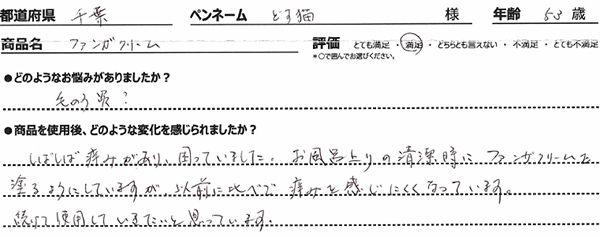 都道府県 千葉 ペンネーム どら猫 様 年齢 53 歳
商品名 ファンガクリーム 評価 とても満足 ・ 満足 ・ どちらとも言えない ・ 不満足 ・ とても不満足
*○で囲んでお選びください。
●どのようなお悩みがありましたか?
毛のう炎?
●商品を使用後、どのような変化を感じられましたか?
しばしば痒みがあり、困っていました。お風呂上りの清潔時にファンガクリームを
塗るようにしていますが、以前に比べて痒みを感じにくくなっています。
続けて使用していきたいと思っています。